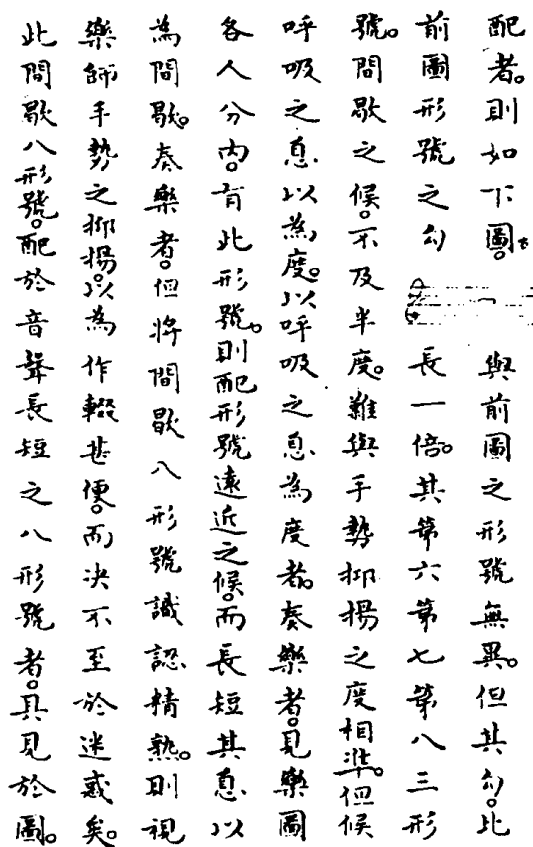 配者。則如下圖。與前圖之形號無異。但其勾。此
前圖形號之勾長一倍。其第六第七第八三形
號。間歇之候。不及半度。難與手勢抑揚之度相準。但候
呼吸之息以為度。以呼吸之息為度者。奏樂者。見樂圖
各人分內。有此形號。則配形號遠近之候。而長短其息以
為間歇。奏樂者。但將間歇八形號識認精熟。則視
樂師手勢之抑揚。以為作輟甚便。而决不至於迷惑矣。
此間歇八形號。配於音聲長短之八形號者。具見於圖。